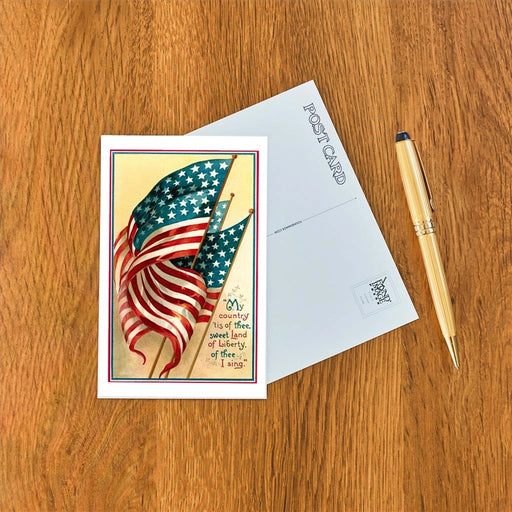 "My
country
'tis of thee,
sweet Land
of Liberty,
of thee
I sing."
POST CARD